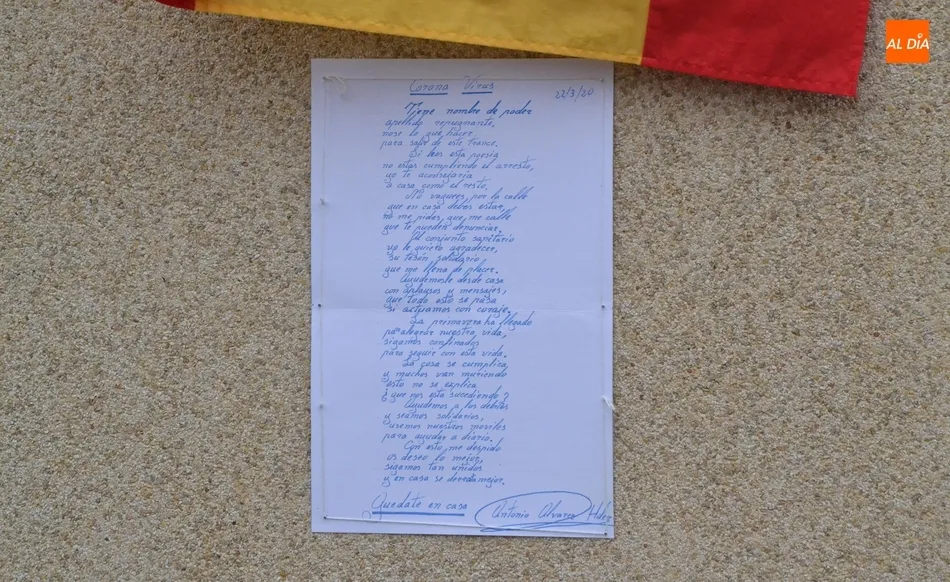 AL DÍA
Corona Virus
22/3/20
Tiene nombre de poder
apellido repugnante,
nose lo que hacer
para salir de este trance.
Si lees esta poesia
no estas cumpliendo el arresto,
yo te aconsejaria
a casa como el resto.
No vaguees por la calle
que en casa debes estar,
no me pidas que me calle
que te pueden denunciar.
Al conjunto sanitario
yo le quiero agradecer,
su tesón solidario
que me llena de placer.
Ayudemosle desde casa
con aplausos y mensajes,
que todo esto se pasa
si activamos con coraje.
La primavera ha llegado
para alegrar nuestra vida,
sigamos confinados
para seguir con esta vida.
La cosa se complica
y muchos van muriendo
esto no se explica
¿ que nos esta sucediendo ?
Ayudemos a los debiles
y seamos solidarios,
usemos nuestros moviles
para ayudar a diario.
Con esto, me despido
os deseo lo mejor,
sigamos tan unidos
y en casa se mejor.
Quedate en casa
Antonio Alvarez Hdez